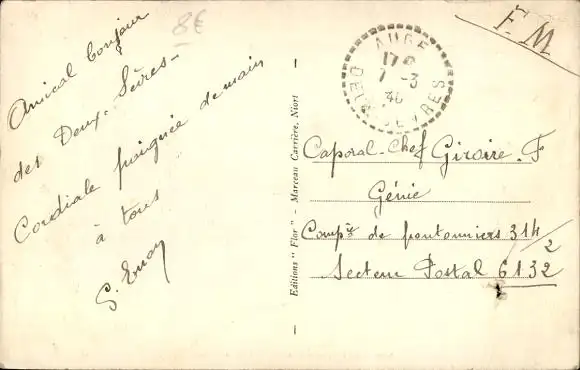 8€
Amical bonjour
des Deux-Sèvres-
Cordiale poignée de main
à tous
F.M.
AUGE
17
7 -3
DEUX SEVRES
Editions "Flor" - Marceau Carrière, Niort
Caporal-Chef Giroire. F
Génie
Comp^ie de pontonniers 314/2
Secteur Postal 6132